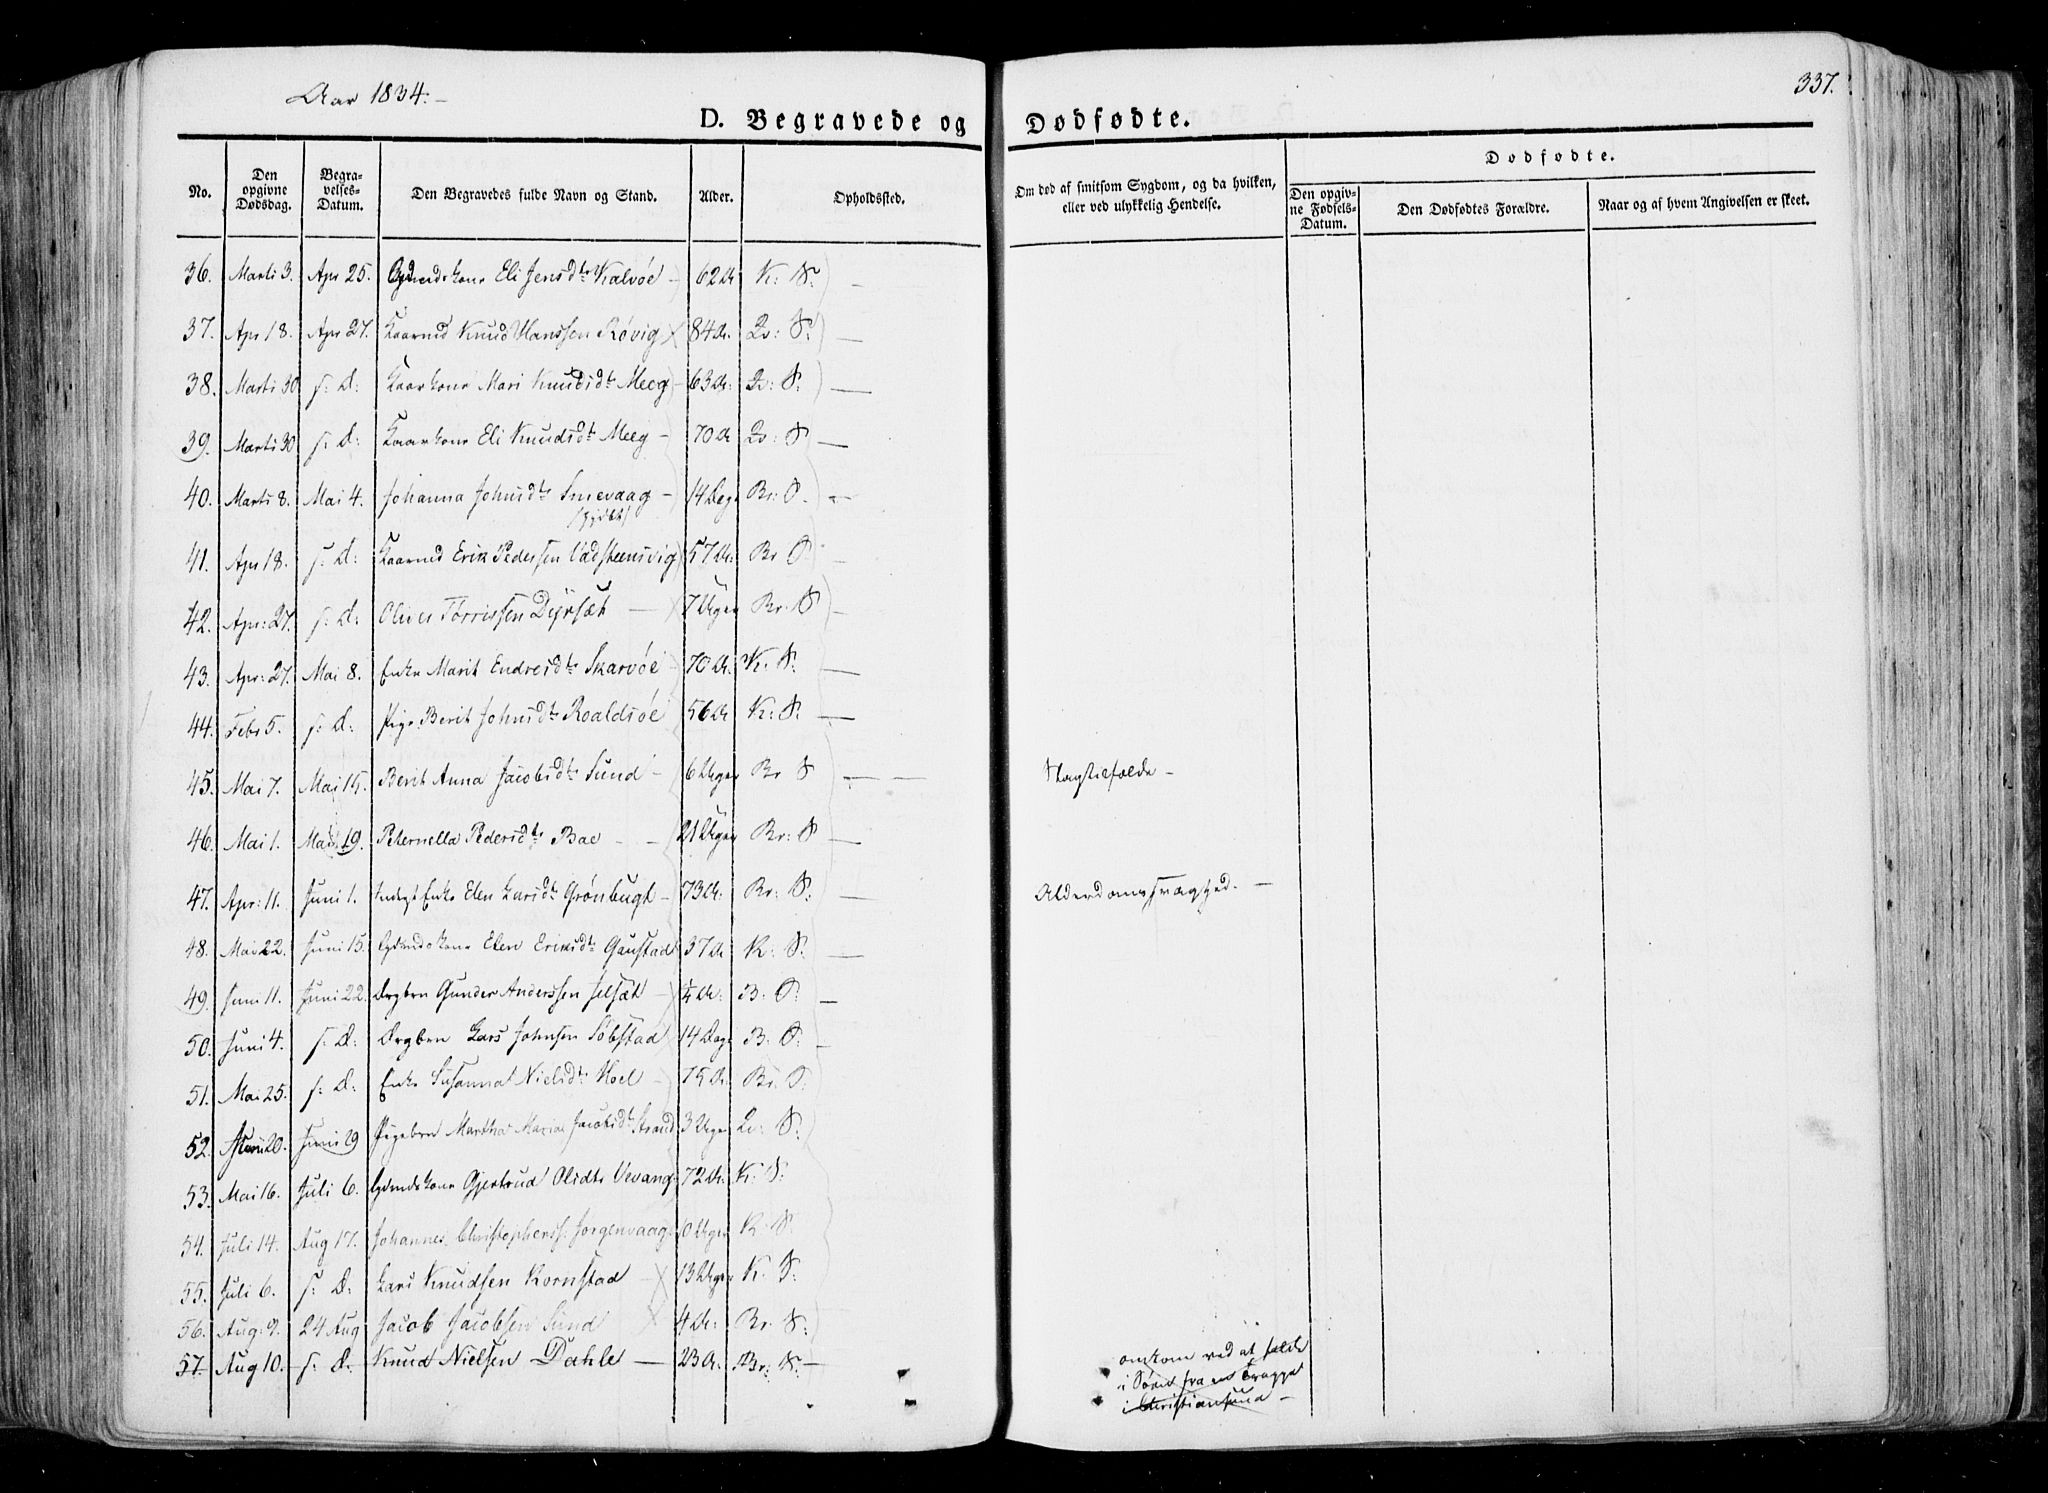 Aar 1834.
337.
D. Begravede og Dødfødte.
No. Den opgivne Dødsdag. Begravelses-Datum. Den Begravedes fulde Navn og Stand. Alder. Opholdssted. Om død af smitsom Sygdom, og da hvilken, eller ved ulykkelig Hendelse. Dødfødte.
Den opgivne Fødsels-Datum. Den Dødfødtes Forældre. Naar og af hvem Angivelsen er skeet.
36. Marti 3. Apr 25. Eli Jensdtr Kalvøe 62 Ar K: S:
37. Apr 18. Apr 27. Kaarmd Knud Hanssen Røvig 84 Ar. Qv: S:
38. Marti 30 s: D: Kaarkone Mari Knudsdtr Meeg 63 Ar: Qv: S:
39. Marti 30 s: D: Kaarkone Eli Knudsdtr Meeg 70 Ar Qv: S
40. Marti 8. Mai 4. Johanna Johnsdtr Smevaag 14 Dage Br: S.
41. Apr 18. s: D: Kaarmd Erik Pedersen Vadsteensvig 57 Ar: Br S
42. Apr: 27. s: D: Oliver Torrissen Dyrsæt 7 Uger Br. S
43. Apr: 27. Mai 8. Enke Marit Endresdtr Skarvøe 70 Ar. K: S:
44. Febr 5. s: D: Pige Berit Johnsdtr Roaldsøe 56 Ar K: S:
45. Mai 7. Mai 15. Berit Anna Jacobsdtr Sund 6 Uger Br S Slagtilfælde
46. Mai 1. Mai 19. Peternella Pedersdtr Bae 21 Uger Br: S
47. Apr: 11. Juni 1. Indgt Enke Elen Larsdtr Grønbugt 73 Ar. Br: S: Alderdomssvaghed.
48. Mai 22. Juni 15. Gdmdskone Elen Eriksdtr Gaustad 37 Ar K: S:
49. Juni 11. Juni 22. Drgbrn Gunder Anderssen 1/4 Ar: B: S:
50. Juni 4. s: D: Drgbrn Lars Johnsen Søbstad 14 Dage B: S:
51. Mai 25. s: D: Enke Susanna Nielsdtr Hoel 75 Ar Br: S:
52. Juni 20. Juni 29 Pigebrn Martha Maria Jacobsdtr Strand 3 Uger Qv: S:
53. Mai 16. Juli 6. Gdmdskone Gjertrud Olsdtr Vevang 72 Ar. K: S:
54. Juli 14. Aug 17. Johannes Christopherss. Jørgenvaag Uger K: S:
55. Juli 6. s: D: Lars Knudsen Kornstad 13 Uger K. S:
56. Aug: 9. 24 Aug Jacob Jacobsen Sund 4 Ar: Br. S:
57. Aug 10. s: D. Knud Nielsen Dahle 23 Ar. Br: S: omkom ved at falde
i Søen fra en Brygge
i Christiansund